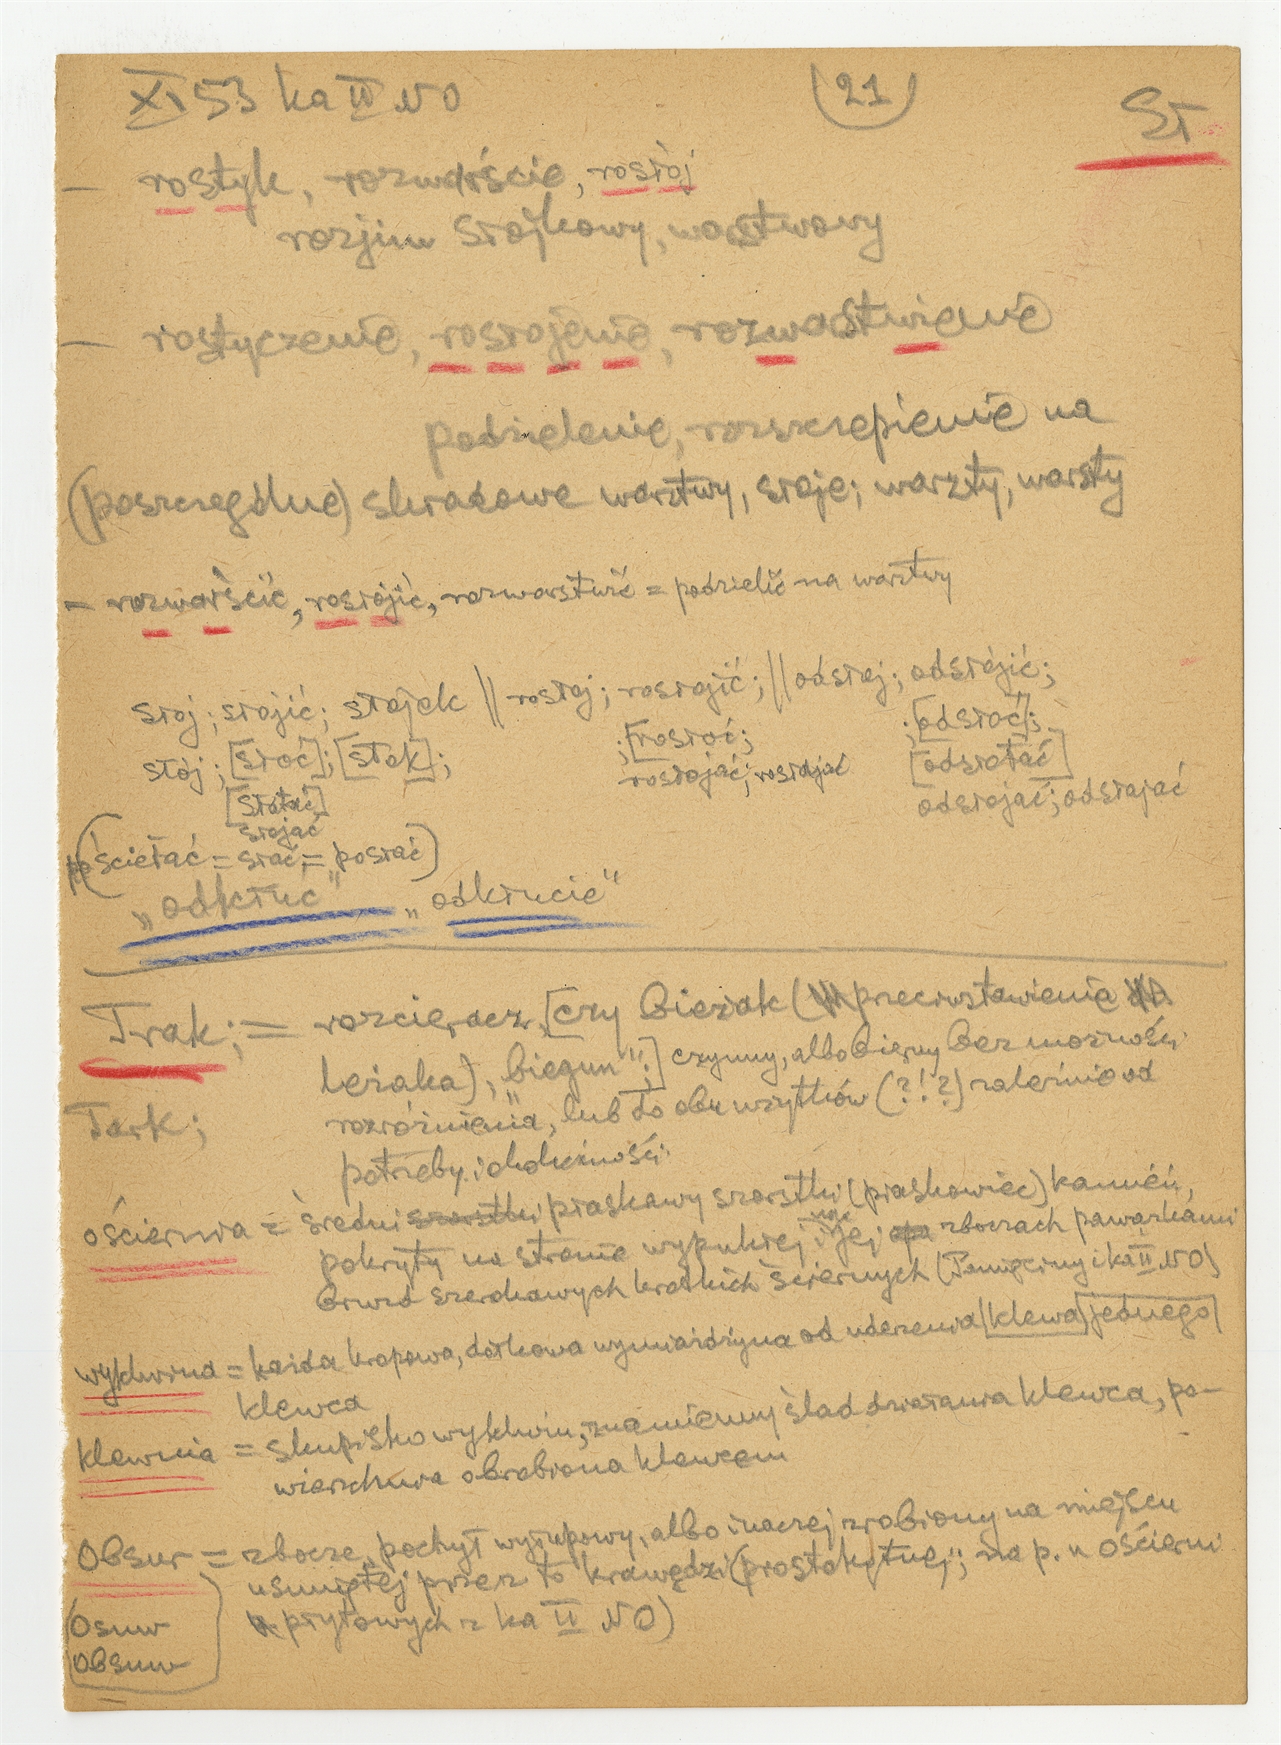 XI 53 ka II NO (21) St
— rostyk, rozwarście, rosłój
rozjim słojkowy, warstwowy
— rostyczenie, rosłojenie, rozwastwienie
podzielenie, rozszczepienie na
(poszczególne) składowe warztwy, słoje; warzty, warsty
— rozwarścić, rosłójić, rozwarstwić = podzielić na warztwy
słoj; słojić; słojek // rosłoj; rosłojić; // odsłoj; odsłójić;
słój; [słoć]; [słok]; ; [rosłoć; ; [odsłoć];
rosłojać; rosłajać [odsłotać]
[słotać] odsłojać; odsłajać
słojać
(pościełać = słać = posłać)
„odkłuc" „odkłucie"
Trak; = rozcieracz, [czy bieżak (przeciwstawienie
leżaka), „biegun";] czynny, albo bierny bez możności
Tark; rozróżnienia, lub do obu użytków (?!?) zależnie od
potrzeby i okoliczności
ościernia = średni szorstki piaskawy szorstki (piaskowiec) kamień,
pokryty na stronie wypukłej i jej zboczach pawązkami
bruzd szerokawych krótkich ściernych (Pamięciny i ka II NO)
wykłwina = każda kropowa, dołkowa wymiażdżyna od uderzenia (klewa) jednego
klewca
klewnia = skupisko wykłwin, znamienny ślad działania klewca, po-
wierzchnia obrobiona klewcem
Obsur = zbocze, pochył wyłupowy, albo inaczej zrobiony na miejscu
usuniętej przez to krawędzi (prostokątnej; na p. u ościerni
płytowych z ka II NO)
Osuw
Obsuw